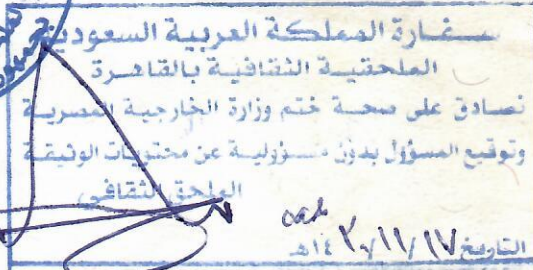 سفارة المملكة العربية السعودية
الملحقية الثقافية بالقاهرة
نصادق على صحة ختم وزارة الخارجية المصرية
وتوقيع المسؤول بدون مسؤولية عن محتويات الوثيقة
الملحق الثقافي
التاريخ ١٧/ ١١/ ١٤هـ